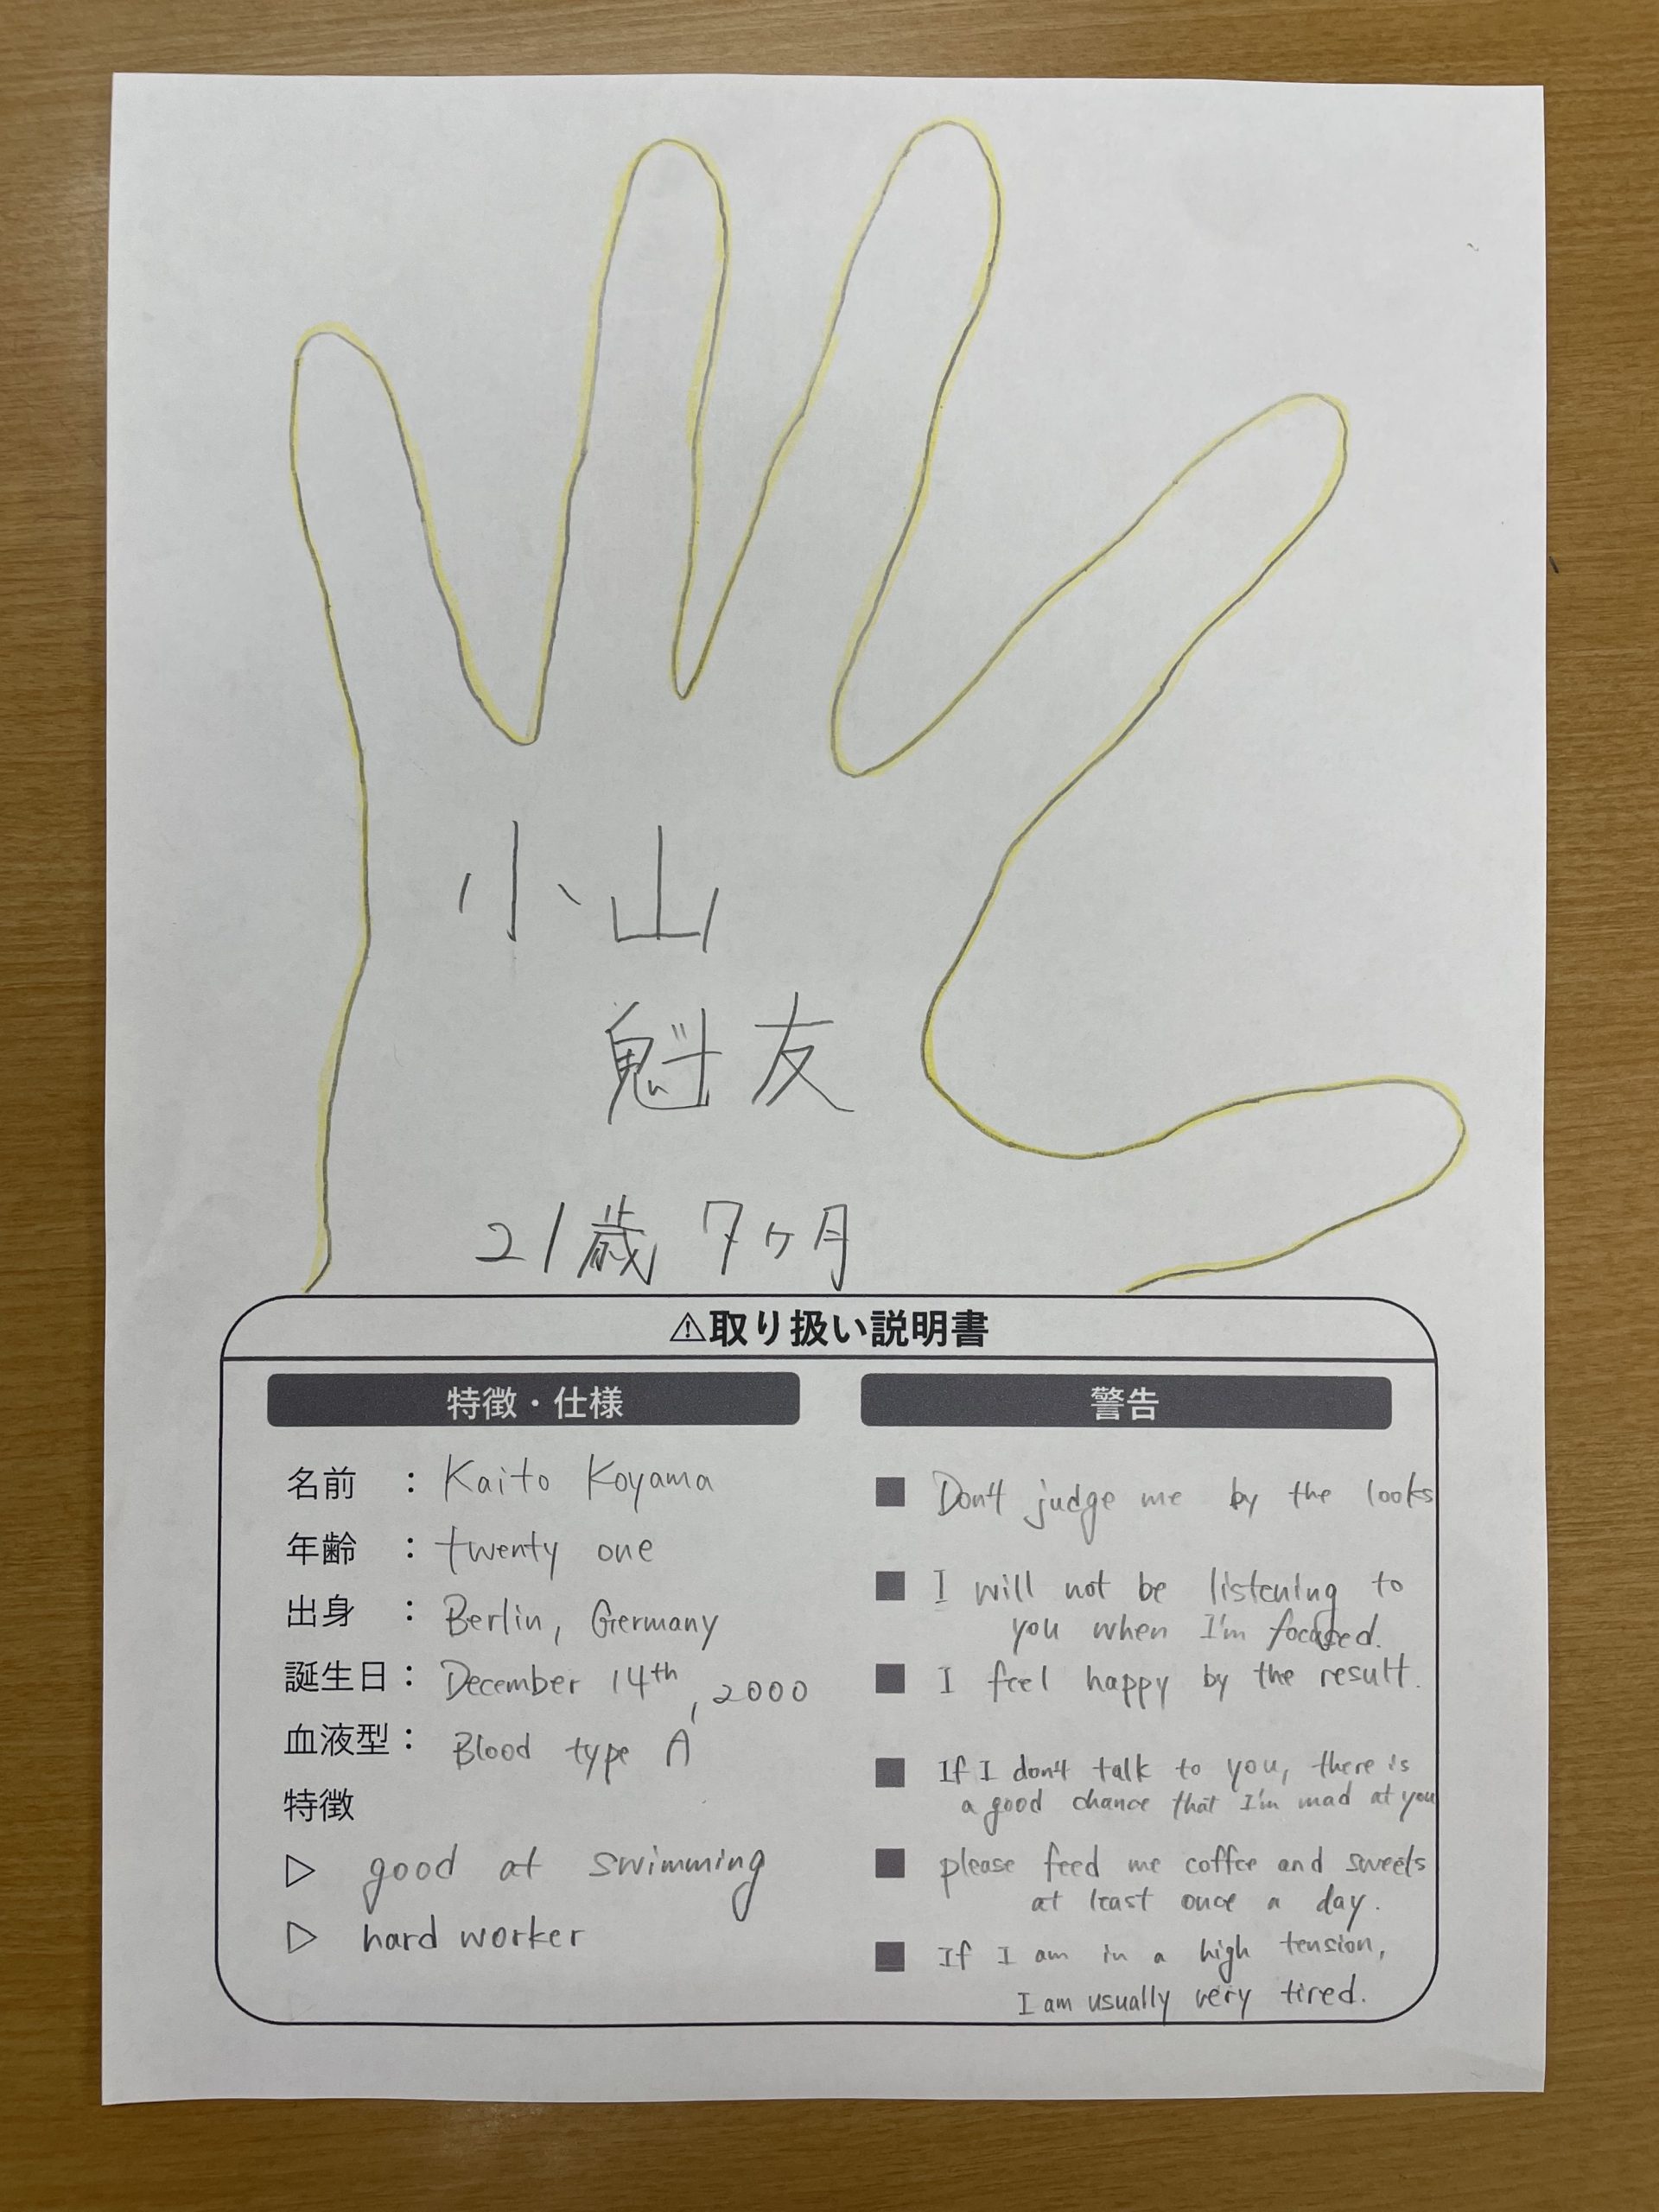 小山
魁友
21歳 7ヶ月
⚠取り扱い説明書
特徴・仕様
名前 : Kaito Koyama
年齢 : twenty one
出身 : Berlin, Germany
誕生日: December 14th, 2000
血液型: Blood type A
特徴
▷ good at swimming
▷ hard worker
警告
■ Don't judge me by the looks
■ I will not be listening to
you when I'm focused.
■ I feel happy by the result.
■ If I don't talk to you, there is
a good chance that I'm mad at you
■ please feed me coffee and sweets
at least once a day.
■ If I am in a high tension,
I am usually very tired.